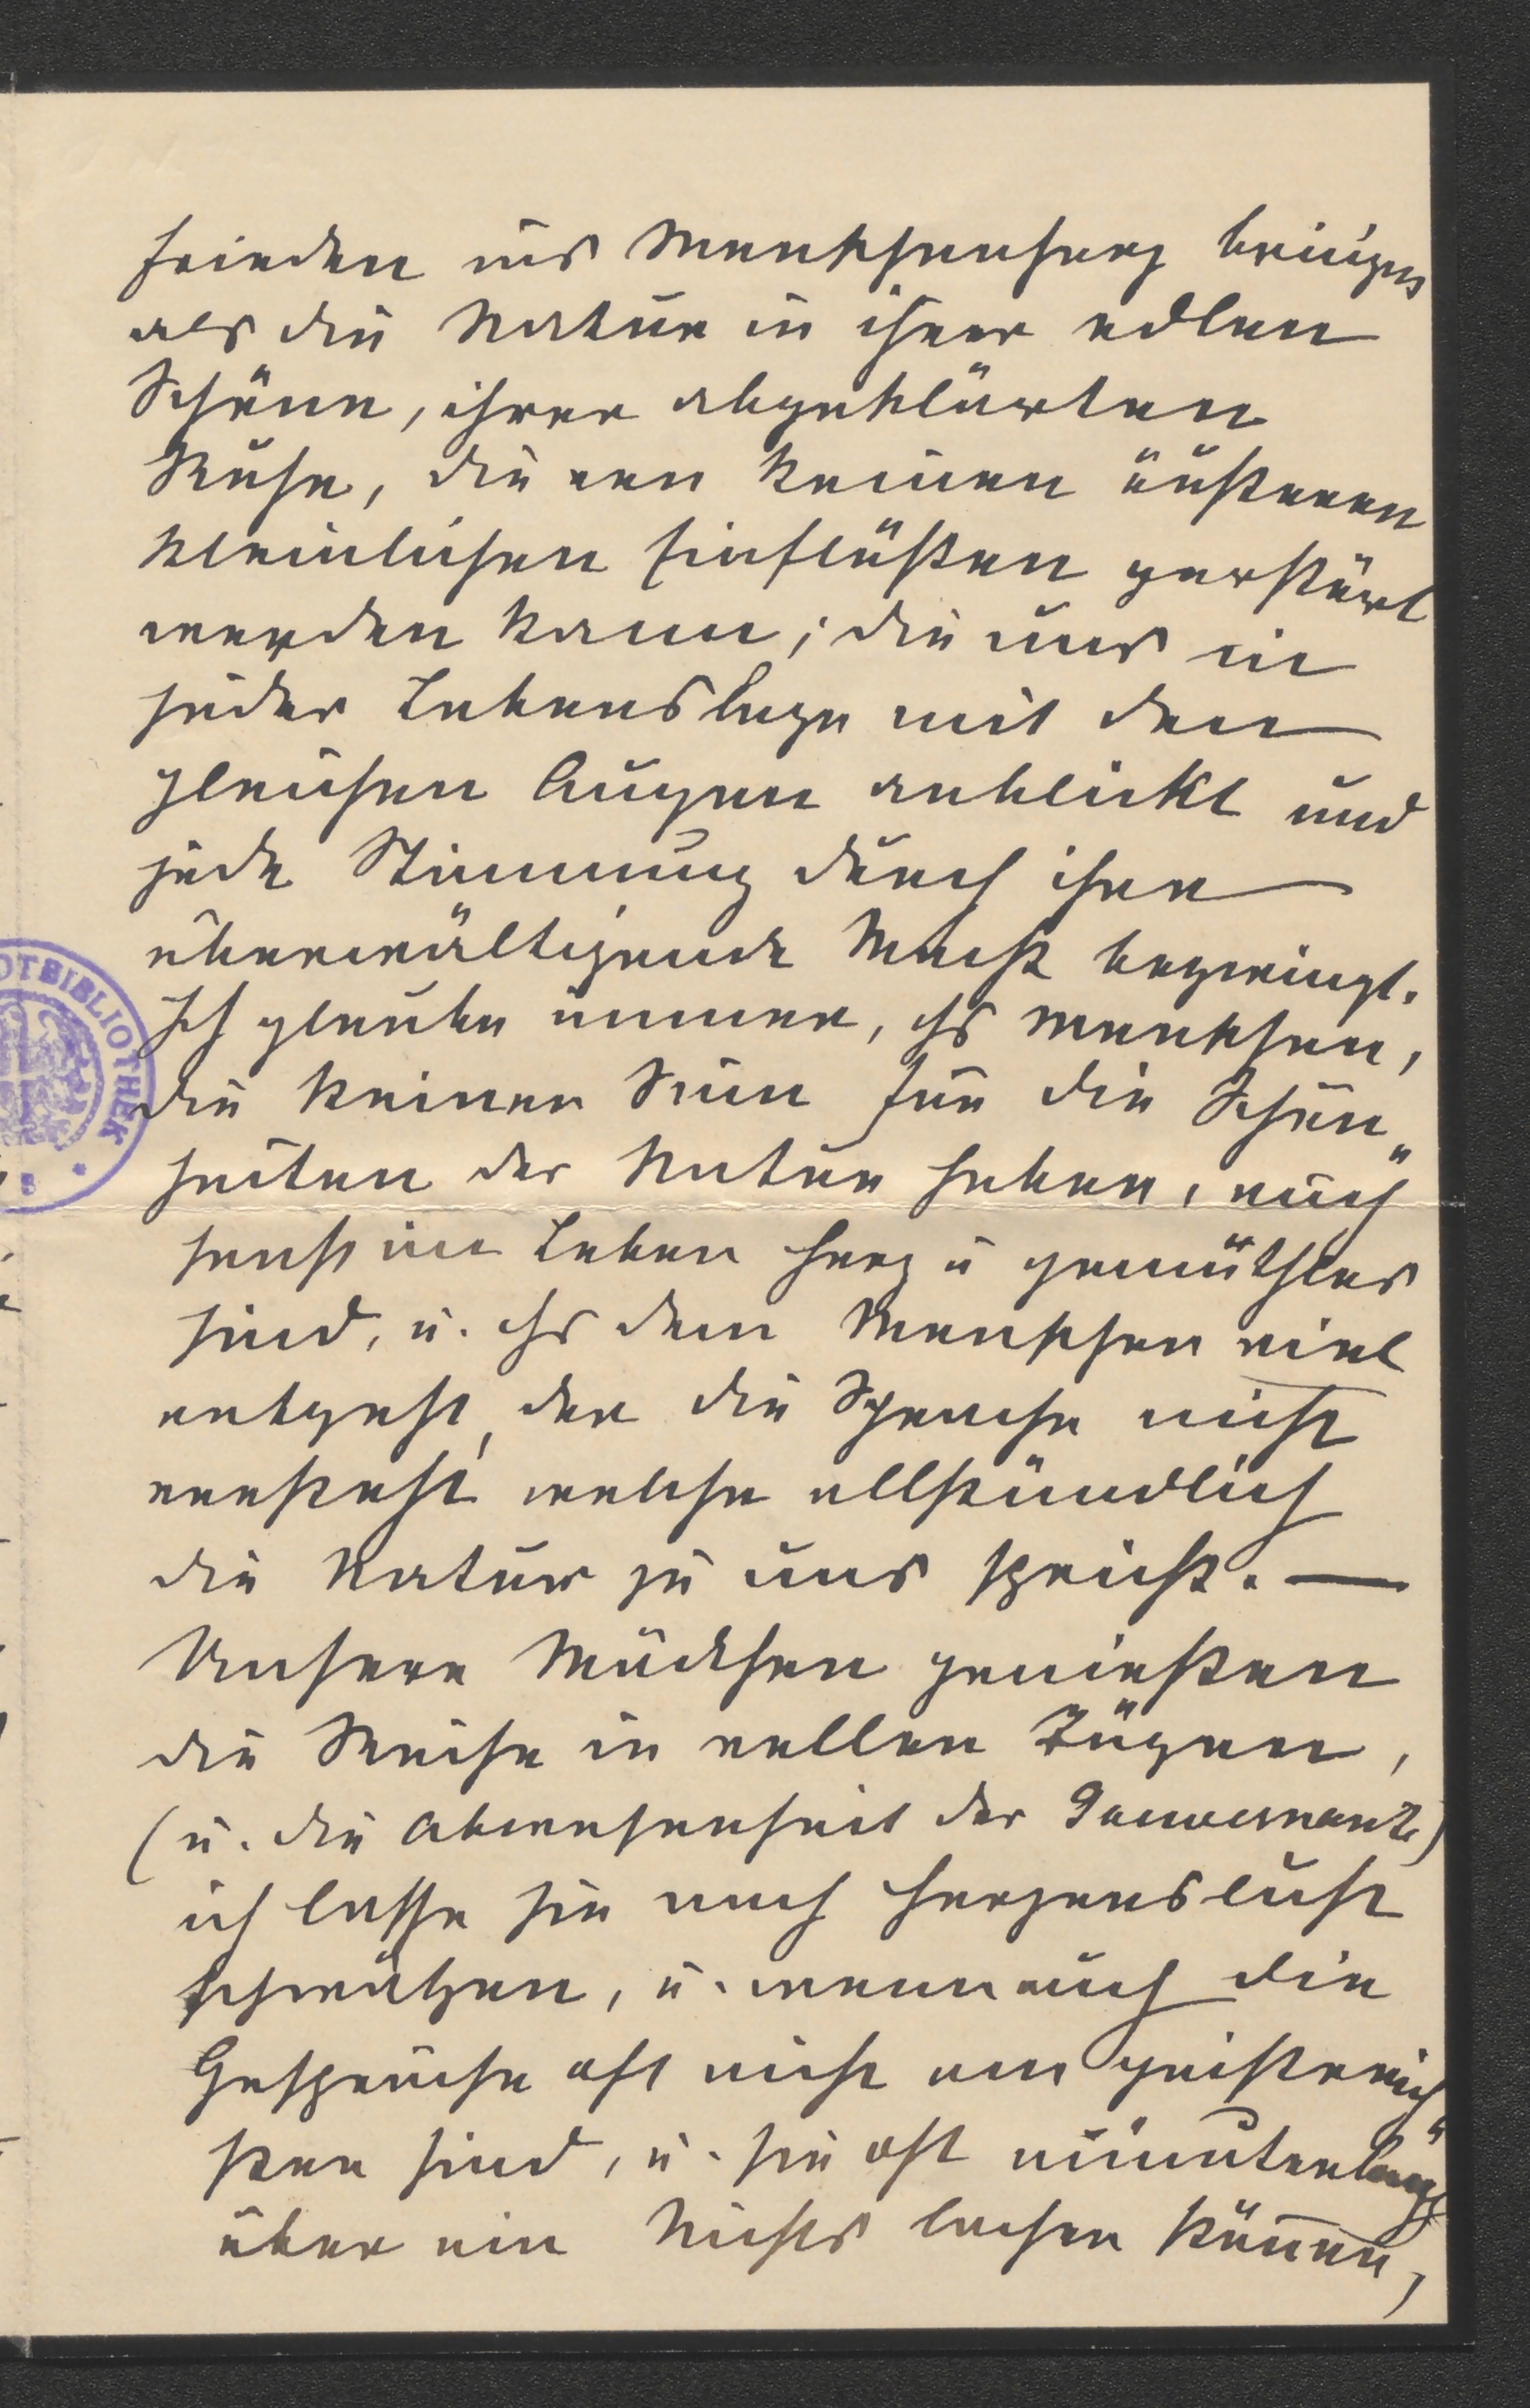 Frieden ins Menschenherz bringen
als die Natur in ihrer edlen
Schöne, ihrer abgeklärten
Ruhe, die von keinen äußeren
kleinlichen Einflüßen zerstört
werden kann; die uns in
jeder Lebenslage mit den
gleichen Augen anblickt und
jede Stimmung durch ihre
überwältigende Macht bezwingt.
Ich glaube immer, dß Menschen,
die keinen Sinn für die Schön„
heiten der Natur haben, auch
sonst im Leben herz u gemüthlos
sind, u. dß dem Menschen viel
entgeht, der die Sprache nicht
versteht, welche allstündlich
die Natur zu uns spricht. —
Unsere Mädchen genießen
die Reise in vollen Zügen,
(u. die Abwesenheit der Gouvernante)
ich lasse sie nach Herzenslust
schwätzen, u. wenn auch die
Gespräche oft nicht am geistreich„
sten sind, u. sie oft minutenlang
über ein Nichts lachen können,
OTBIBLIOTHEK